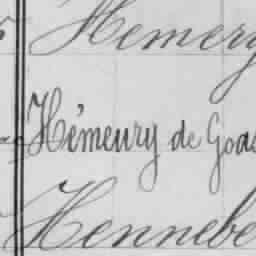 Hemery
Hémeury de Goas
Hennebe